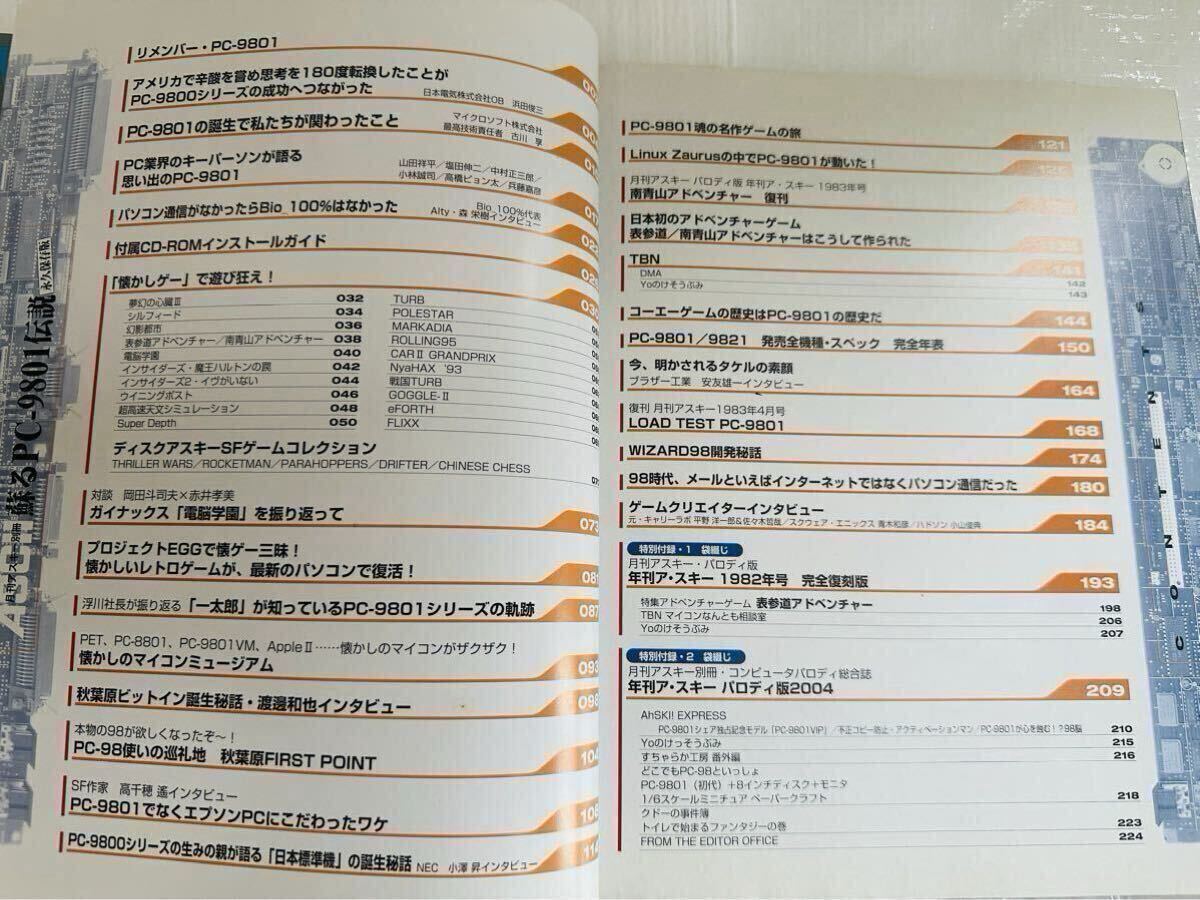 月刊アスキー別冊 蘇るPC-9801伝説 永久保存版
リメンバー・PC-9801
アメリカで辛酸を嘗め思考を180度転換したことが
PC-9800シリーズの成功へつながった 日本電気株式会社OB 浜田俊三
PC-9801の誕生で私たちが関わったこと マイクロソフト株式会社
最高技術責任者 古川 享
PC業界のキーパーソンが語る
思い出のPC-9801 山田祥平／塩田伸二／中村正三郎／
小林誠司／高橋ピョン太／兵藤嘉彦
パソコン通信がなかったらBio_100%はなかった Bio_100%代表
Alty・森 栄樹インタビュー
付属CD-ROMインストールガイド
「懐かしゲー」で遊び狂え！ 030
夢幻の心臓Ⅲ 032
シルフィード 034
幻影都市 036
表参道アドベンチャー／南青山アドベンチャー 038
電脳学園 040
インサイダーズ・魔王ハルトンの罠 042
インサイダーズ2・イヴがいない 044
ウイニングポスト 046
超高速天文シミュレーション 048
Super Depth 050
TURB
POLESTAR
MARKADIA
ROLLING95
CARⅡ GRANDPRIX
NyaHAX '93
戦国TURB
GOGGLE-Ⅱ
eFORTH
FLIXX
ディスクアスキーSFゲームコレクション
THRILLER WARS／ROCKETMAN／PARAHOPPERS／DRIFTER／CHINESE CHESS
対談 岡田斗司夫×赤井孝美
ガイナックス「電脳学園」を振り返って 073
プロジェクトEGGで懐ゲー三昧！
懐かしいレトロゲームが、最新のパソコンで復活！ 081
浮川社長が振り返る 「一太郎」が知っているPC-9801シリーズの軌跡 087
PET、PC-8801、PC-9801VM、AppleⅡ……懐かしのマイコンがザクザク！
懐かしのマイコンミュージアム 093
秋葉原ビットイン誕生秘話・渡邊和也インタビュー 098
本物の98が欲しくなったぞ〜！
PC-98使いの巡礼地 秋葉原FIRST POINT 104
SF作家 高千穂 遙インタビュー
PC-9801でなくエプソンPCにこだわったワケ 108
PC-9800シリーズの生みの親が語る「日本標準機」の誕生秘話 NEC 小澤 昇インタビュー 114
PC-9801魂の名作ゲームの旅 121
Linux Zaurusの中でPC-9801が動いた！
月刊アスキー パロディ版 年刊ア・スキー 1983年号
南青山アドベンチャー 復刊
日本初のアドベンチャーゲーム
表参道／南青山アドベンチャーはこうして作られた
TBN 141
DMA 142
Yoのけそうぶみ 143
コーエーゲームの歴史はPC-9801の歴史だ 144
PC-9801／9821 発売全機種・スペック 完全年表 150
今、明かされるタケルの素顔
ブラザー工業 安友雄一インタビュー 164
復刊 月刊アスキー1983年4月号
LOAD TEST PC-9801 168
WIZARD98開発秘話 174
98時代、メールといえばインターネットではなくパソコン通信だった 180
ゲームクリエイターインタビュー
元・キャリーラボ 平野 洋一郎&佐々木哲哉／スクウェア・エニックス 青木和彦／ハドソン 小山俊典 184
特別付録・1 袋綴じ
月刊アスキー・パロディ版
年刊ア・スキー 1982年号 完全復刻版 193
特集アドベンチャーゲーム 表参道アドベンチャー 198
TBN マイコンなんとも相談室 206
Yoのけそうぶみ 207
特別付録・2 袋綴じ
月刊アスキー別冊・コンピュータパロディ総合誌
年刊ア・スキー パロディ版2004 209
AhSKI! EXPRESS
PC-9801シェア独占記念モデル「PC-9801VIP」／不正コピー防止・アクティベーションマン／PC-9801が心を蝕む！？98脳 210
Yoのけっそうぶみ 215
すちゃらか工房 番外編 216
どこでもPC-98といっしょ
PC-9801（初代）＋8インチディスク＋モニタ
1/6スケールミニチュア ペーパークラフト 218
クドーの事件簿
トイレで始まるファンタジーの巻 223
FROM THE EDITOR OFFICE 224
CONTENTS